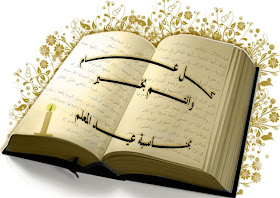 كل عام
وانتم بخير
بمناسبة عيد المعلم